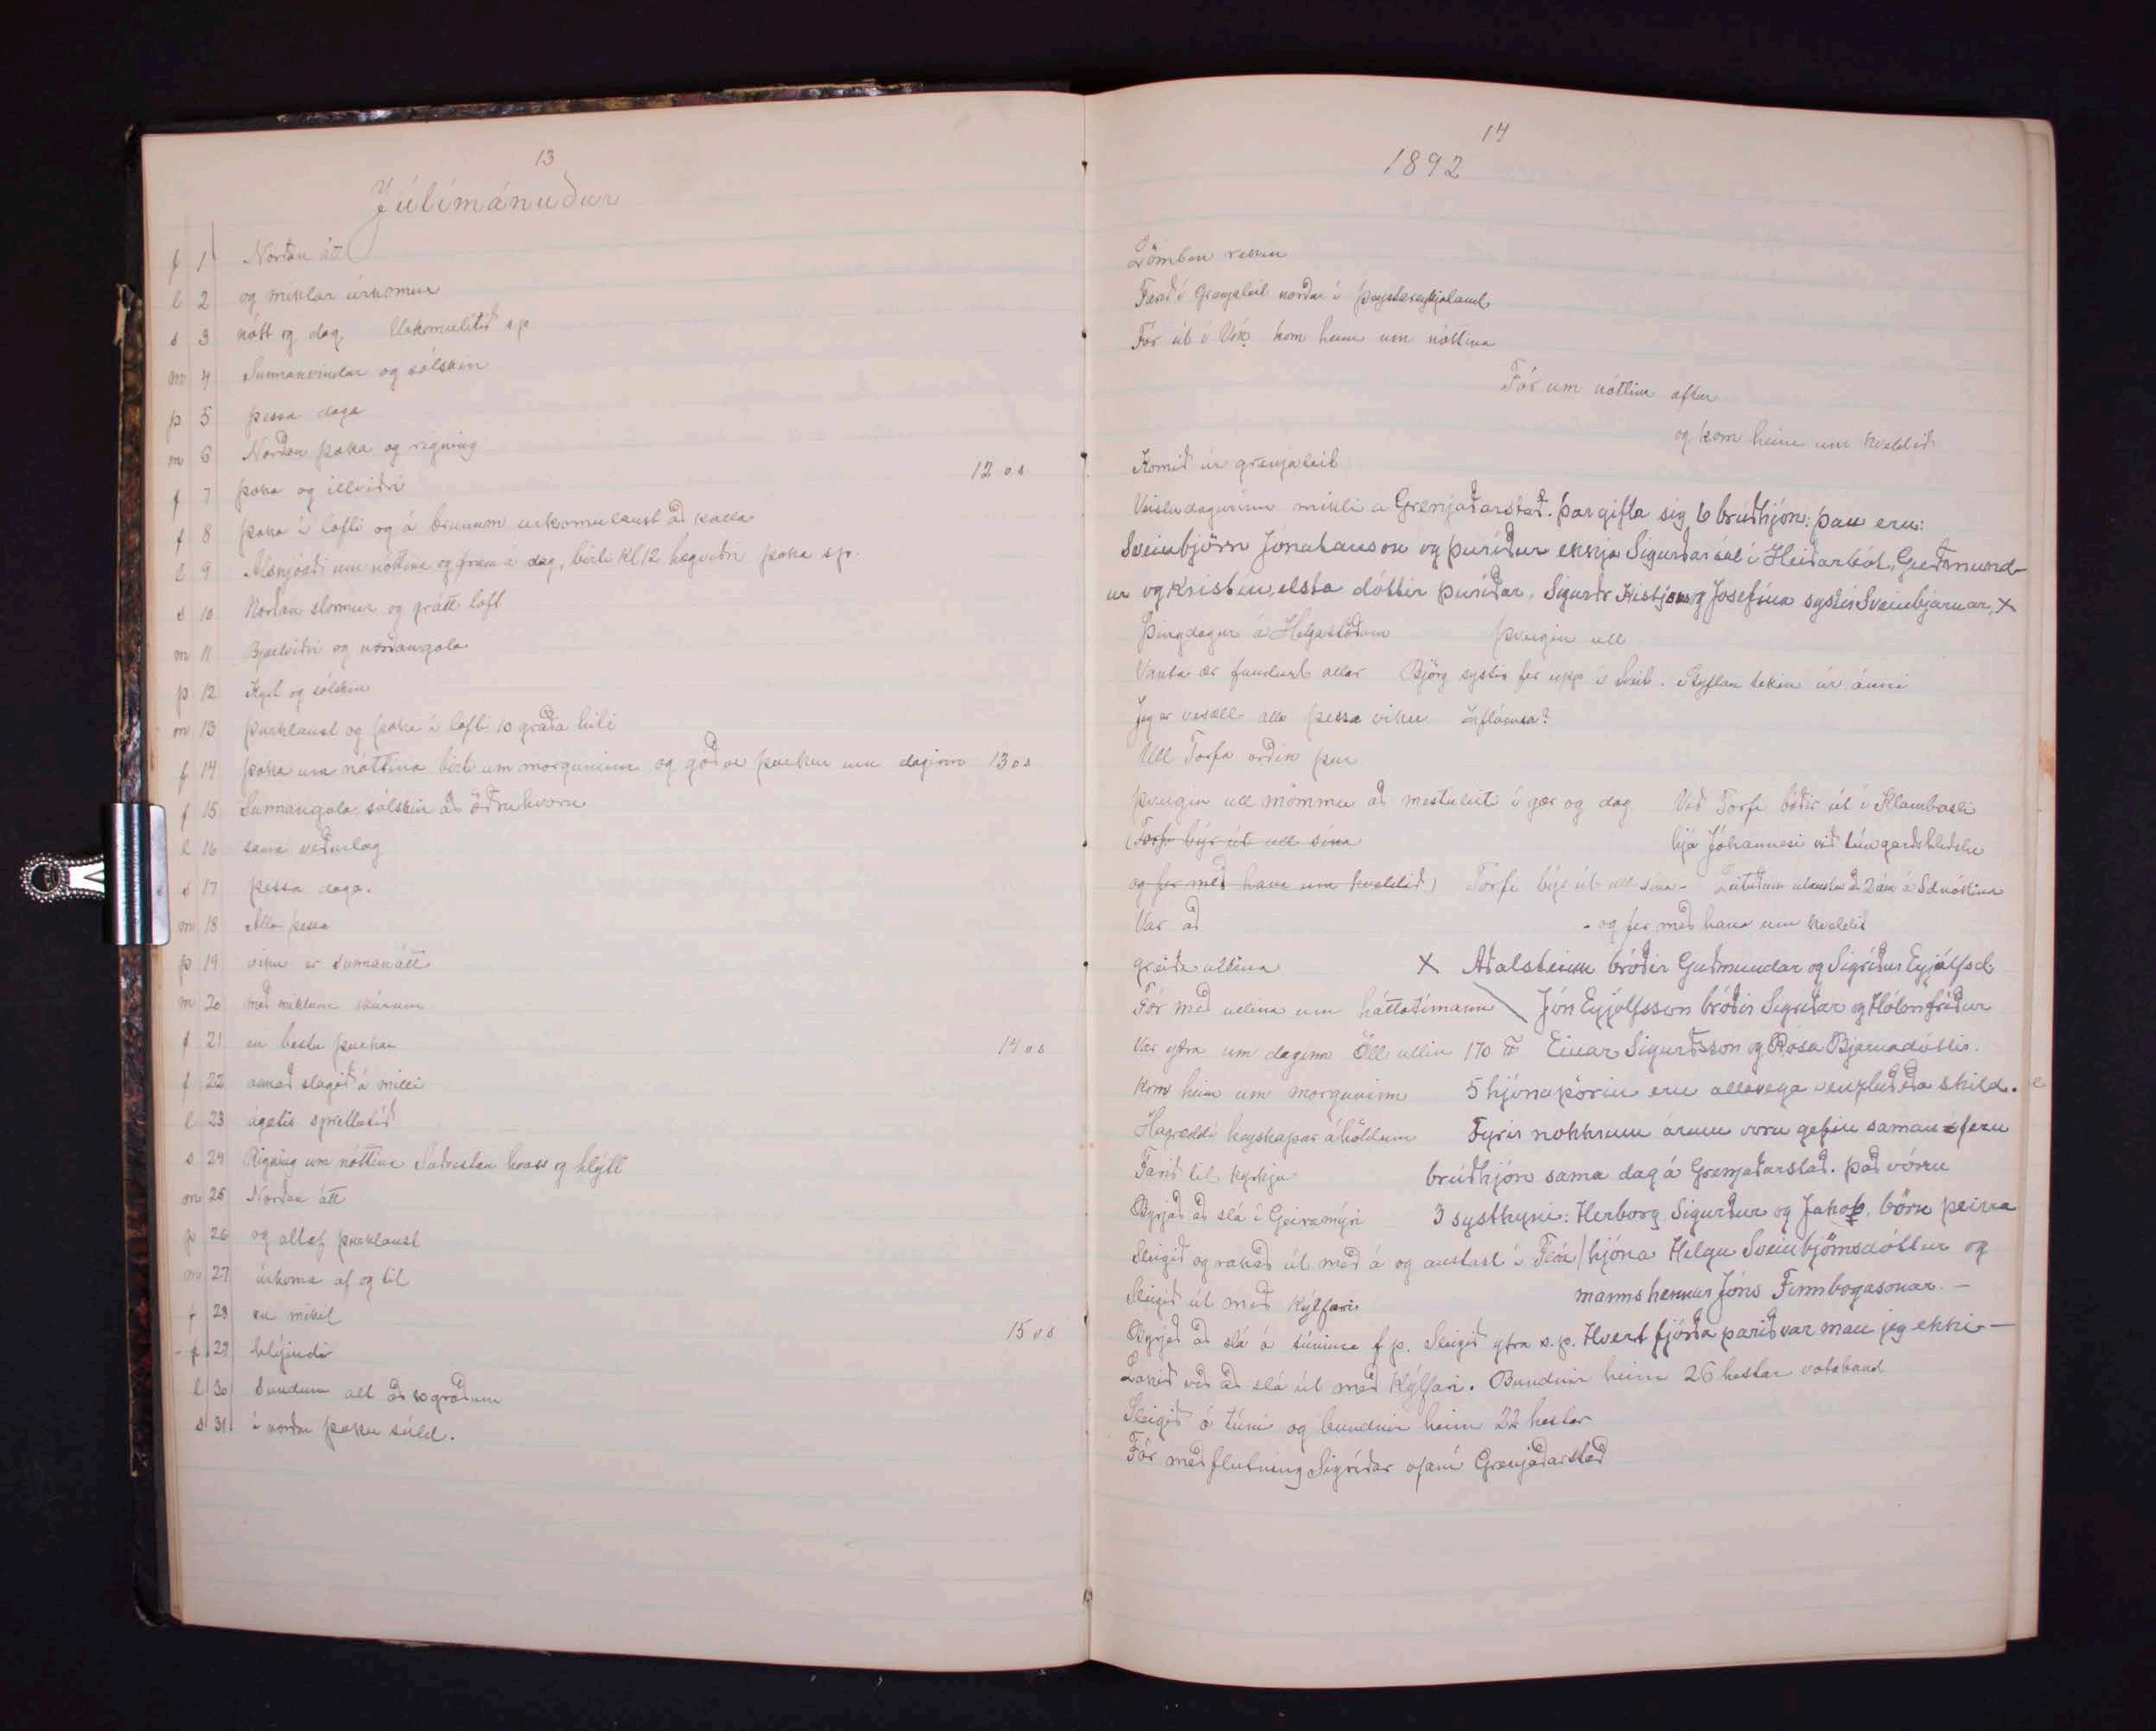 13
Júlímánuður
f 1 Norðan átt
l 2 og miklar úrkomur
s 3 nótt og dag. Úrkomulítið s.p.
m 4 Sunnanvindar og sólskin
þ 5 þessa daga
m 6 Norðan þoka og rigning
f 7 þoka og illviðri 12 v s
f 8 þoka í lofti og á brúnum úrkomulaust að kalla
l 9 Alsnjóaði um nóttina og fram á dag, birti kl 12 hægviðri þoka s.p.
s 10 Norðan stormur og grátt loft
m 11 Bjartviðri og norðangola
þ 12 Kyrt og sólskin
m 13 þurklaust og þoka í lofti 10 graða hiti
f 14 þoka um nóttina birti um morguninn og góður þurkur um daginn 13 v s
f 15 Sunnangola, sólskin að öðruhvoru
l 16 sama veðurlag
s 17 þessa daga.
m 18 Alla þessa
þ 19 viku er sunnanátt
m 20 með miklum skúrum
f 21 en bestu þurkar 14 v s
f 22 annað slagið á milli
l 23 ágætis sprettutíð
s 24 Rigning um nóttina Suðvestan hvass og hlýtt
m 25 Norðan átt
þ 26 og altaf þurklaust
m 27 úrkoma af og til
f 28 en mikil
f 29 hlýindi 15 v s
l 30 Sundum alt að 10 gráðum
s 31 í norðan þoku súld.
14
1892
Lömbin rekin
Farið í Grenjaleit norður í Þeystareykjaland
Fór út í Vík kom heim um nóttina
Fór um nóttina aftur
og kom heim um kveldið
Komið úr grenjaleit
Veisludagurinn mikli á Grenjaðarstað. Þar gifta sig 6 brúðhjón: þau eru:
Sveinbjörn Jónatansson og Þuríður ekkja Sigurðar sál í Heiðarbót, Guðmund-
ur og Kristín, elsta dóttir Þuríðar, Sigurðr Kristjáns og Jósefína systir Sveinbjarnar, X
Þingdagur á Helgastöðum þvegin ull
Vanta ær fundust allar Björg systir fer upp í Sveit. Styflan tekin úr ánni
Jeg er vesæll alla þessa viku Inflúensa?
Ull Torfa orðin þur
þvegin ull mömmu að mestuleiti í gær og dag Við Torfi báðir út í Klambraseli
(Torfi býr út ull sína hjá Jóhannesi við túngarðshleðslu
og fer með hana um kveldið) Torfi býr út ull sína -
Var að - og fer með hana um kveldið
greiða ullina X Aðalsteinn bróðir Guðmundar og Sigríður Eyjólfsd
Fór með ullina um háttatímann Jón Eyjólfsson bróðir Sigríðar og Hólmfríður
Var ytra um daginn Öll ullin 170 ℔ Einar Sigurðsson og Rósa Bjarnadóttir.
Kom heim um morguninn 5 hjónapörin eru allavega venzluð eða skild.
Hagræddi heyskapar áhöldum Fyrir nokkrum árum voru gefin saman fern
Farið til kyrkju brúðhjón sama dag á Grenjaðarstað. Það vóru
Byrjað að slá í Geiramýri 3 systkyni: Herborg Sigurður og Jakob, börn þeirra
Slegið og rakað út með á og austast í Flóa / hjóna Helgu Sveinbjörnsdóttur og
Slegið út með Kýlfari manns hennar Jóns Finnbogasonar. -
Byrjað að slá á túninu f p. Slegið ytra s.p. Hvert fjórða parið var man jeg ekki -
Lokið við að slá út með Kýlfari. Bundnir heim 26 hestar votaband
Slegið á túni og bundnir heim 22 hestar
Fór með flutning Sigríðar ofaní Grenjaðarstað